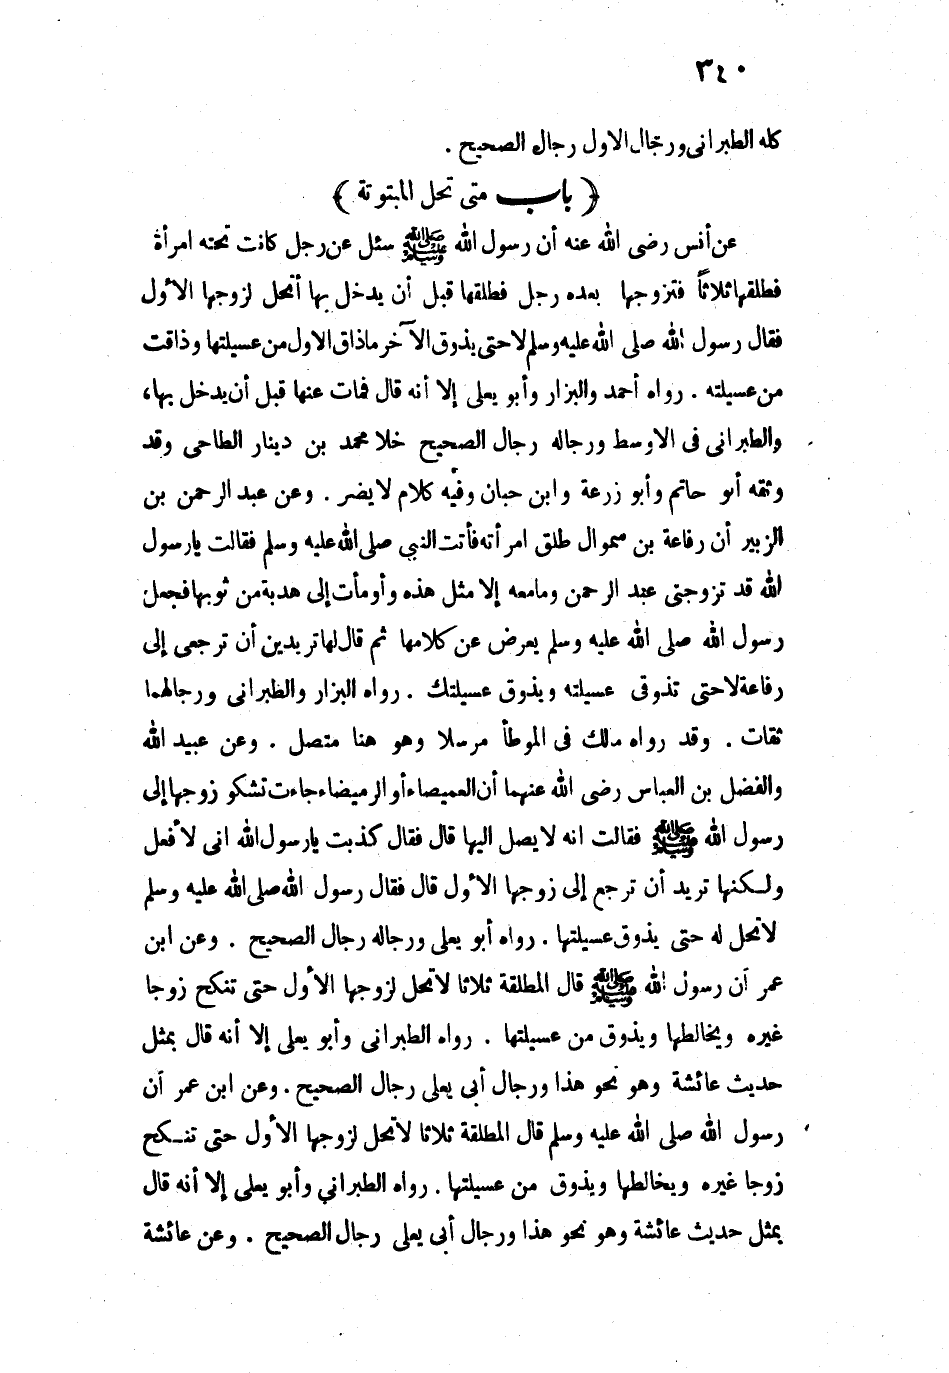 ٣٤٠
كله الطبرانى ورجال الاول رجال الصحيح .
﴿ باب متى تحل المبتوتة ﴾
عن أنس رضى الله عنه أن رسول الله ﷺ سئل عن رجل كانت تحته امرأة
فطلقها ثلاثاً فتزوجها بعده رجل فطلقها قبل أن يدخل بها أتحل لزوجها الأول
فقال رسول الله صلى الله عليه وسلم لا حتى يذوق الآخر ما ذاق الاول من عسيلتها وذاقت
من عسيلته . رواه أحمد والبزار وأبو يعلى إلا أنه قال فمات عنها قبل أن يدخل بها،
والطبرانى فى الاوسط ورجاله رجال الصحيح خلا محمد بن دينار الطاحى وقد
وثقه أبو حاتم وأبو زرعة وابن حبان وفيه كلام لا يضر . وعن عبد الرحمن بن
الزبير أن رفاعة بن سموال طلق امرأته فأتت النبي صلى الله عليه وسلم فقالت يارسول
الله قد تزوجنى عبد الرحمن ومامعه إلا مثل هذه وأومأت إلى هدبة من ثوبها فجعل
رسول الله صلى الله عليه وسلم يعرض عن كلامها ثم قال لها تريدين أن ترجعى إلى
رفاعة لا حتى تذوقى عسيلته ويذوق عسيلتك . رواه البزار والطبرانى ورجالهما
ثقات . وقد رواه مالك فى الموطأ مرسلا وهو هنا متصل . وعن عبيد الله
والفضل بن العباس رضى الله عنهما أن العميصاء أو الرميضاء جاءت تشكو زوجها إلى
رسول الله ﷺ فقالت انه لا يصل اليها قال فقال كذبت يارسول الله انى لأفعل
ولـكنها تريد أن ترجع إلى زوجها الأول قال فقال رسول الله صلى الله عليه وسلم
لا تحل له حتى يذوق عسيلتها . رواه أبو يعلى ورجاله رجال الصحيح . وعن ابن
عمر أن رسول الله ﷺ قال المطلقة ثلاثا لا تحل لزوجها الأول حتى تنكح زوجا
غيره ويخالطها ويذوق من عسيلتها . رواه الطبرانى وأبو يعلى إلا أنه قال بمثل
حديث عائشة وهو نحو هذا ورجال أبى يعلى رجال الصحيح . وعن ابن عمر أن
رسول الله صلى الله عليه وسلم قال المطلقة ثلاثا لا تحل لزوجها الأول حتى تنـكح
زوجا غيره ويخالطها ويذوق من عسيلتها . رواه الطبراني وأبو يعلى إلا أنه قال
بمثل حديث عائشة وهو نحو هذا ورجال أبى يعلى رجال الصحيح . وعن عائشة